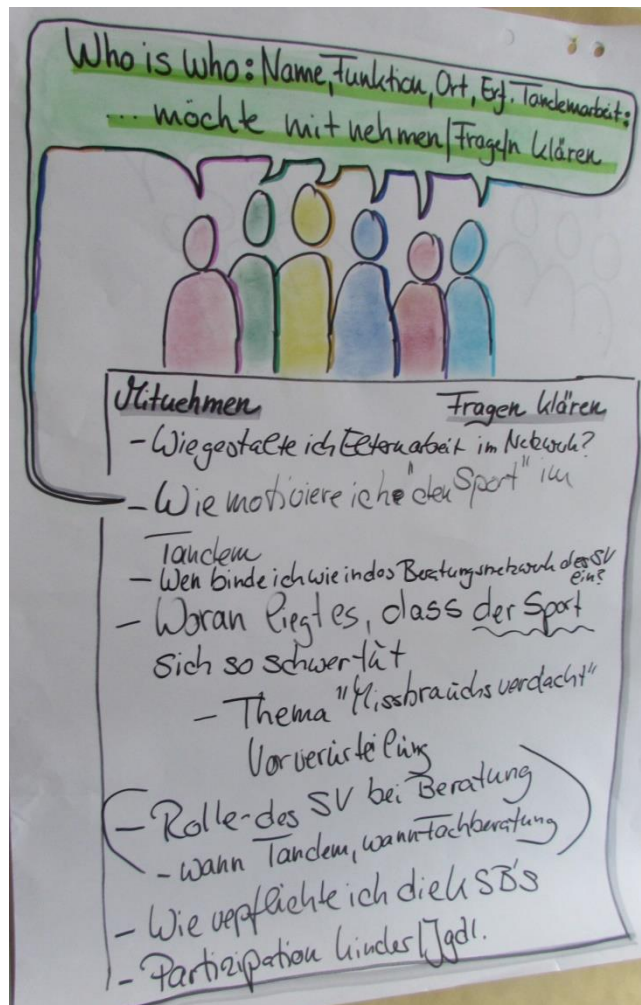 Who is who: Name, Funktion, Ort, Erf. Tandemarbeit:
... möchte mitnehmen/Frage/n klären
Mitnehmen Fragen klären
- Wie gestalte ich Elternarbeit im Netzwerk?
- Wie motiviere ich "den Sport" im
Tandem
- Wen binde ich wie in das Beratungsnetzwerk des SV
ein?
- Woran liegt es, dass der Sport
sich so schwertút
- Thema "Missbrauchsverdacht"
Vorverurteilung
- Rolle des SV bei Beratung
- wann Tandem, wann Fachberatung
- Wie vepflichte ich die KSB's
- Partizipation Kinder/Jgdl.